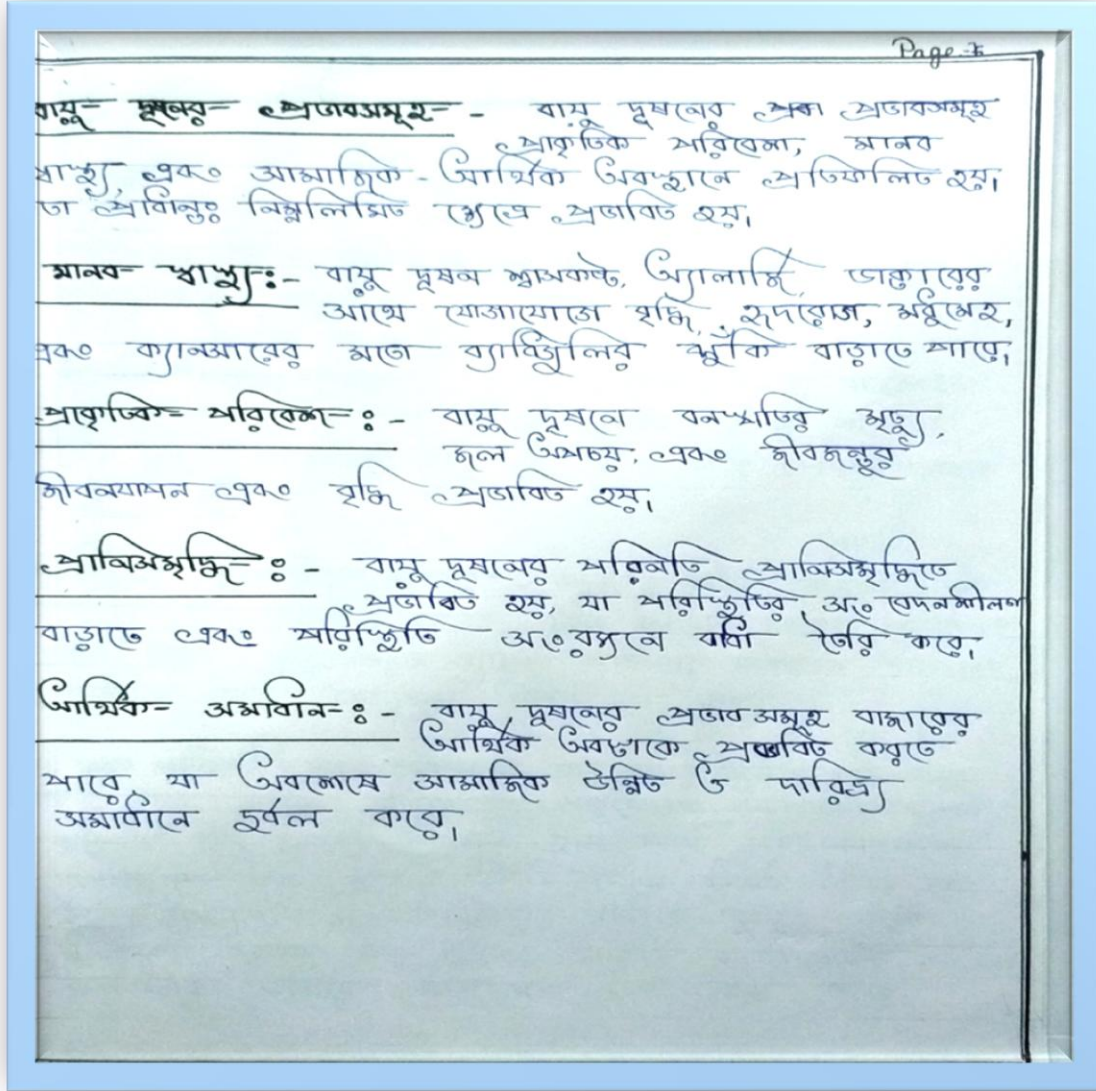 Page-
বায়ু দূষনের প্রভাবসমূহ - বায়ু দূষনের প্রভাবসমূহ
প্রাকৃতিক পরিবেশ, মানব
স্বাস্থ্য, এবং সামাজিক - আর্থিক অবস্থানে প্রতিফলিত হয়।
তা প্রধানুঃ নিম্নলিখিত ক্ষেত্রে প্রভাবিত হয়।
মানব স্বাস্থ্য:- বায়ু দূষন শ্বাসকষ্ট, অ্যালার্জি, ডাক্তারের
সাথে যোগাযোগে বৃদ্ধি, হৃদরোগ, মধুমেহ,
এবং ক্যানসারের মতো ব্যাধিগুলির ঝুঁকি বাড়াতে পারে।
প্রাকৃতিক পরিবেশ ঃ- বায়ু দূষনে বনস্পতির মৃত্যু,
জল অপচয়, এবং জীবজন্তুর
জীবনযাপন এবং বৃদ্ধি প্রভাবিত হয়।
প্রানিসমৃদ্ধি ঃ- বায়ু দূষনের পরিনতি প্রানিসমৃদ্ধিতে
প্রভাবিত হয়, যা পরিস্থিতির সংবেদনশীলতা
বাড়াতে এবং পরিস্থিতি সংরক্ষনে বাধা তৈরি করে।
আর্থিক সমাধান ঃ- বায়ু দূষনের প্রভাব সমূহ বাজারের
আর্থিক অবস্থাকে প্রভাবিত করতে
পারে, যা অবশেষে সামাজিক উন্নিত ও দারিদ্র্য
সমাধানে দুর্বল করে।